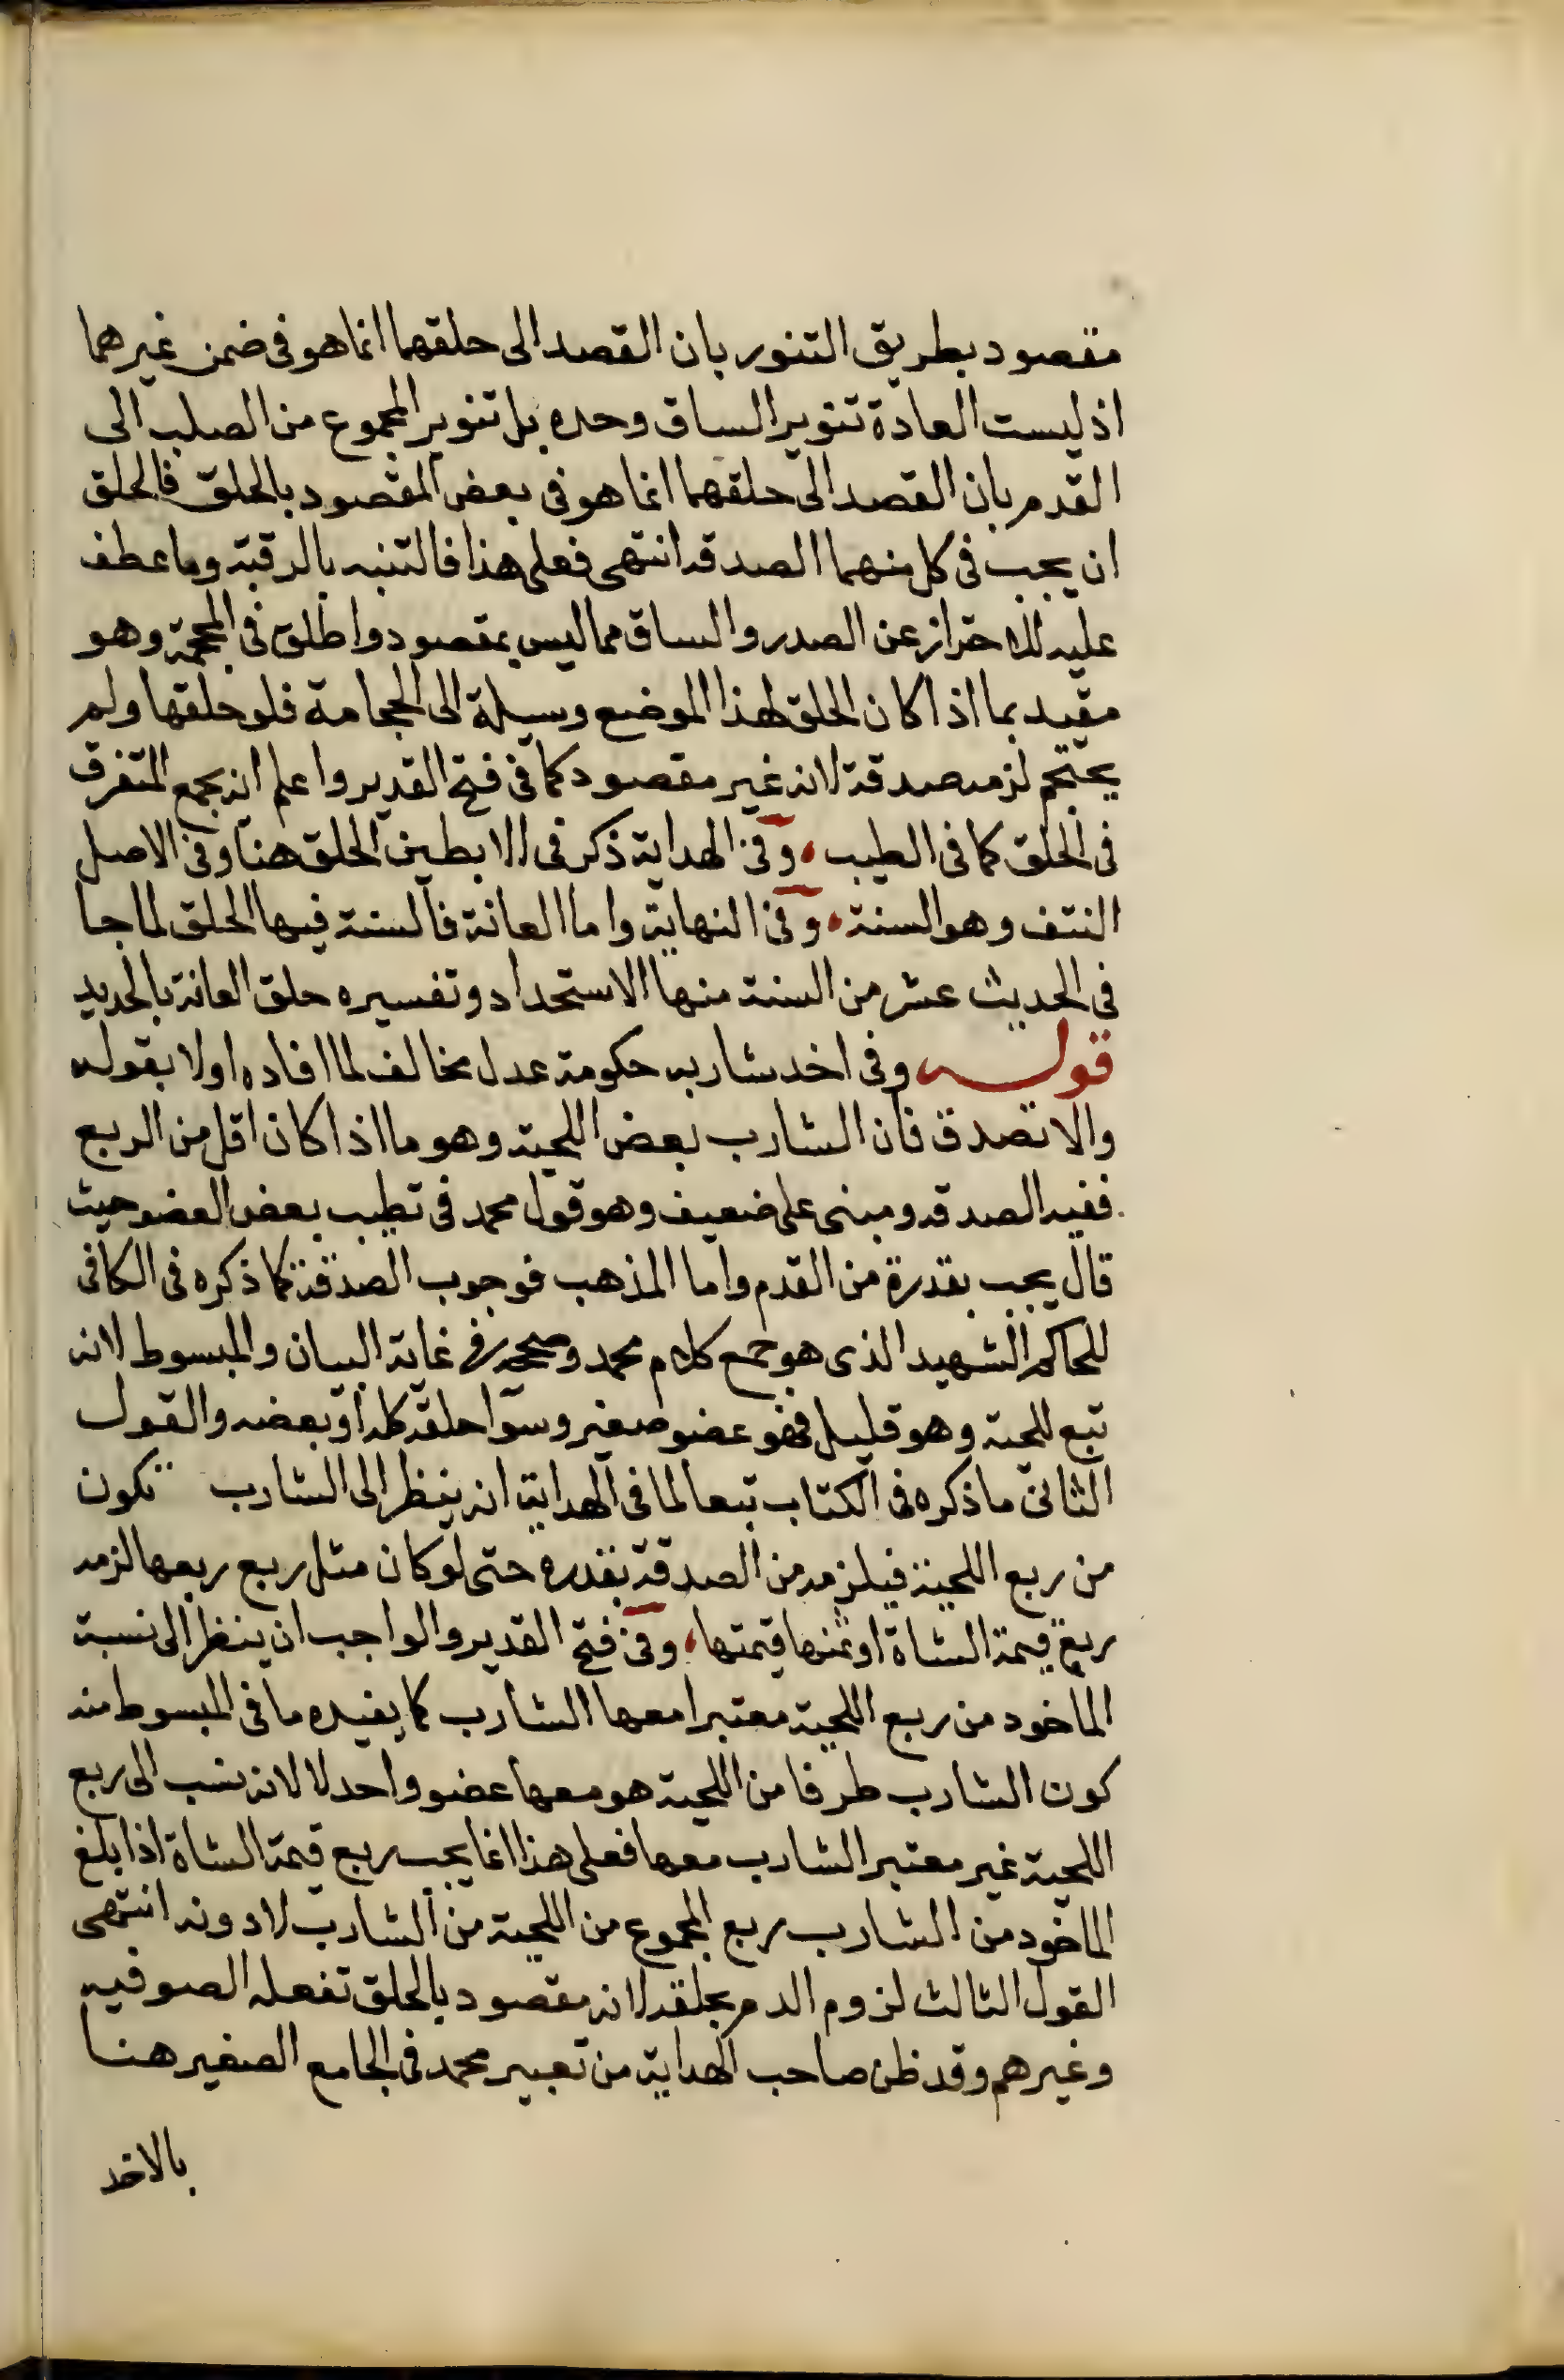 مقصود بطريق التنور بان القصد الى حلقهما انما هو فى ضمن غيرهما
اذ ليست العادة تنوير الساق وحده بل تنوير المجموع من الصلب الى
القدم بان القصد الى حلقهما انما هو فى بعض المقصود بالحلق فالحلق
ان يجب فى كل منهما الصدقه انتهى فعلى هذا فالتنبه بالرقبة وما عطف
عليه للاحتراز عن الصدر والساق مما ليس بمقصود واطلق فى المحجمة وهو
مقيد بما اذا كان الحلق لهذا الموضع وسيلة الى الحجامة فلو حلقها ولم
يحتجم لزمه صدقة لانه غير مقصود كما فى فتح القدير واعلم انه يجمع المتفرق
فى الحلق كما فى الطيب، وفى الهداية ذكر فى الابطين الحلق هنا وفى الاصل
النتف وهو السنة، وفى النهاية واما العانة فالسنة فيها الحلق لما جا
فى الحديث عشر من السنة منها الاستحداد وتفسيره حلق العانة بالحديد
قوله وفى اخد شاربه حكومة عدل مخالف لما افاده اولا بقوله
والا تصدق فان الشارب بعض اللحية وهو ما اذا كان اقل من الربع
ففيه الصدقه ومبنى على ضعيف وهو قول محمد فى تطيب بعض العضو حيث
قال يجب بقدرة من القدم واما المذهب فوجوب الصدقة كما ذكره فى الكافى
للحاكم الشهيد الذى هو جمع كلام محمد وصححه فى غاية البيان والمبسوط لانه
تبع للحية وهو قليل فهو عضو صغير وسوآ حلقه كله او بعضه والقول
الثانى ما ذكره فى الكتاب تبعا لما فى الهداية انه ينظر الى الشارب تكون
من ربع اللحية فيلزمه من الصدقة بقدره حتى لو كان مثل ربع ربعها لزمه
ربع قيمة الشاة او ثمنها قيمتها، وفى فتح القدير والواجب ان ينظر الى نسبة
الماخود من ربع اللحية معتبرا معها الشارب كما يفيده ما فى المبسوط منه
كون الشارب طرفا من اللحية هو معها عضو واحد لا لانه نسب الى ربع
اللحية غير معتبر الشارب معها فعلى هذا انما يجب ربع قيمة الشاة اذا بلغ
الماخود من الشارب ربع المجموع من اللحية من الشارب لا دونه انتهى
القول الثالث لزوم الدم بحلقه لانه مقصود بالحلق تفعله الصوفيه
وغيرهم وقد ظن صاحب الهداية من تعبير محمد فى الجامع الصغير هنا
بالاخد